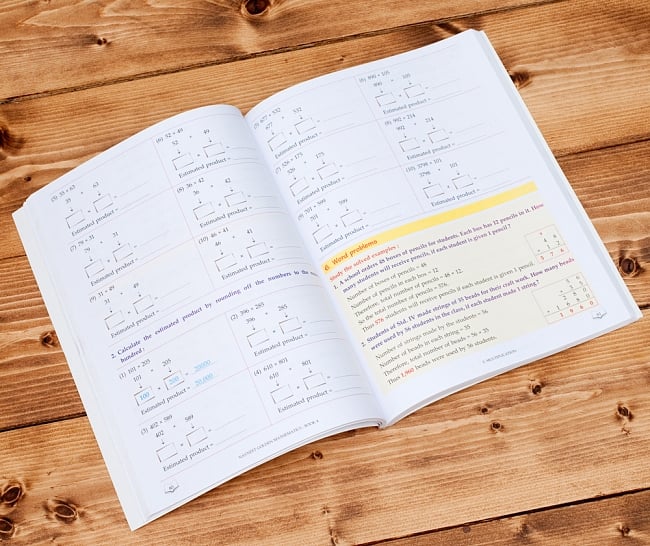 (5) 35 × 63
35 63
Estimated product =
(6) 52 × 49
52 49
Estimated product =
(7) 79 × 31
31
Estimated product =
(8) 36 × 42
36 42
Estimated product =
(9) 31 × 49
31 49
Estimated product =
(10) 46 × 41
46 41
Estimated product =
2. Calculate the estimated product by rounding off the numbers to the
hundred :
(1) 101 × 205
101 205
100 × 200 = 20000
Estimated product = 20,000
(2) 396 × 285
396 285
Estimated product =
(3) 402 × 589
402 589
Estimated product =
(4) 610 × 801
610 801
Estimated product =
NAVNEET GOLDEN MATHEMATICS : BOOK 4
(5) 677 × 532
677 532
Estimated product =
(6) 890 × 105
890 105
Estimated product =
(7) 526 × 175
526 175
Estimated product =
(8) 992 × 214
992 214
Estimated product =
(9) 701 × 599
701 599
Estimated product =
(10) 3798 × 101
3798 101
Estimated product =
6 Word problems
Study the solved examples :
1. A school orders 48 boxes of pencils for students. Each box has 12 pencils in it. How
many students will receive pencils, if each student is given 1 pencil ?
Number of boxes of pencils = 48
Number of pencils in each box = 12
Therefore, total number of pencils = 48 × 12.
So the total number of pencils = 576.
Thus 576 students will receive pencils if each student is given 1 pencil.
2. Students of Std. IV made strings of 35 beads for their craft work. How many beads
were used by 56 students in the class, if each student made 1 string ?
Number of strings made by the students = 56
Number of beads in each string = 35
Therefore, total number of beads = 56 × 35
Thus 1,960 beads were used by 56 students.
5 7 6
1 9 6 0